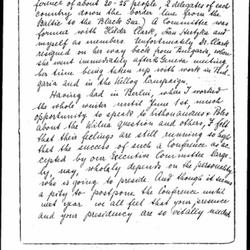 ference of about 20-25 people, 2 delegates of each
country down the border line from the
Baltic to the Black Sea.) A Committee was
formed with Hilda Clark, and
myself as members. Unfortunately H. Clark
resigned on her way back from Bulgaria, where
she went immediately after Geneva meeting,
her time being taken up with work in
garia and in the Kellog Campaign.
Having had in Berlin, when I worked
the whole winter until June 1st, much
opportunity to speak to Lithuanians, Poles
about the Wilna question and others, I felt
that their feelings are still running so high
that the success of such a conference as ac-
cepted by our Executive Committee large-
ly, nay, wholely depends on the personality
who is going to preside. And though it seems
a pity to postpone the Conference until
next year we all feel that your presence
and your presidency are so vitally needed